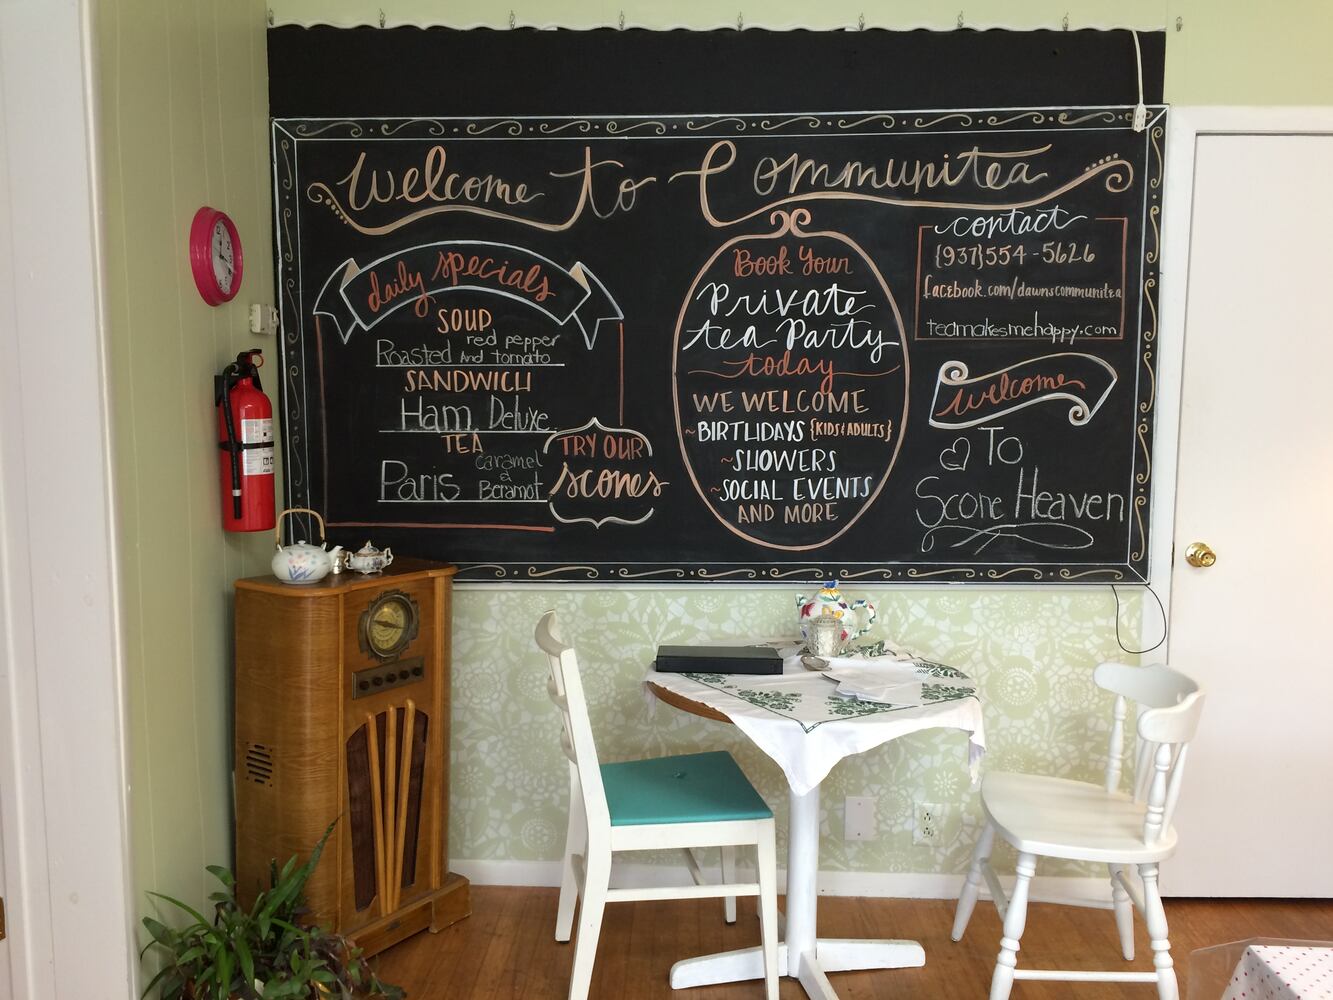 Welcome To Communitea
daily specials
SOUP
Roasted red pepper
And tomato
SANDWICH
Ham Deluxe
TEA
Paris caramel
& Beramot
TRY OUR
scones
Book Your
Private
tea Party
today
WE WELCOME
~BIRTHDAYS {KIDS & ADULTS}
~SHOWERS
~SOCIAL EVENTS
AND MORE
contact
{937}554-5626
facebook.com/dawnscommunitea
teamakesmehappy.com
welcome
To
Scone Heaven